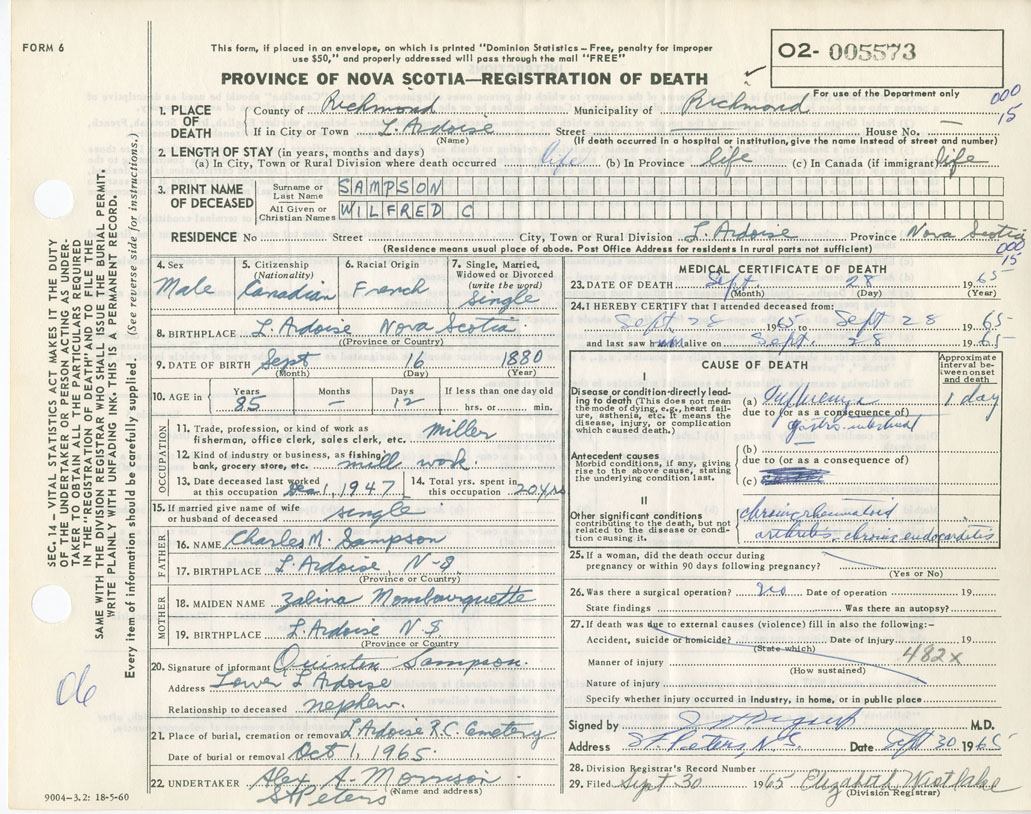 FORM 6
This form, if placed in an envelope, on which is printed "Dominion Statistics – Free, penalty for improper
use $50," and properly addressed will pass through the mail "FREE"
O2- 005573
PROVINCE OF NOVA SCOTIA—REGISTRATION OF DEATH
For use of the Department only
000
15
1. PLACE OF DEATH County of Richmond Municipality of Richmond
If in City or Town L. Ardoise Street House No. —
(Name) (If death occurred in a hospital or institution, give the name instead of street and number)
2. LENGTH OF STAY (in years, months and days)
(a) In City, Town or Rural Division where death occurred life (b) In Province life (c) In Canada (if immigrant) life
3. PRINT NAME OF DECEASED
Surname or Last Name SAMPSON
All Given or Christian Names WILFRED C
RESIDENCE No Street City, Town or Rural Division L. Ardoise Province Nova Scotia
(Residence means usual place of abode. Post Office Address for residents in rural parts not sufficient)
000
15
4. Sex Male
5. Citizenship (Nationality) Canadian
6. Racial Origin French
7. Single, Married, Widowed or Divorced (write the word) Single
8. BIRTHPLACE L. Ardoise Nova Scotia
(Province or Country)
9. DATE OF BIRTH Sept 16 1880
(Month) (Day) (Year)
10. AGE in Years 85 Months – Days 12 If less than one day old hrs. or min.
OCCUPATION
11. Trade, profession, or kind of work as
fisherman, office clerk, sales clerk, etc. miller
12. Kind of industry or business, as fishing,
bank, grocery store, etc. mill work.
13. Date deceased last worked
at this occupation 1, 1947
14. Total yrs. spent in
this occupation 20 yrs
15. If married give name of wife
or husband of deceased single
FATHER
16. NAME Charles M. Sampson
17. BIRTHPLACE L. Ardoise, N-S
(Province or Country)
MOTHER
18. MAIDEN NAME Zabina Mombourquette
19. BIRTHPLACE L. Ardoise N S.
(Province or Country)
20. Signature of informant Quinton Sampson.
Address Lower L Ardoise
Relationship to deceased nephew.
21. Place of burial, cremation or removal L Ardoise R.C. Cemetery
Date of burial or removal Oct 1, 1965.
22. UNDERTAKER Alex A. Morrison.
(Name and address)
St Peters
9004–3.2: 18-5-60
MEDICAL CERTIFICATE OF DEATH
23. DATE OF DEATH Sept. 28 1965
(Month) (Day) (Year)
24. I HEREBY CERTIFY that I attended deceased from:
Sept 28 1965 to Sept 28 1965
and last saw him alive on Sept. 28 1965
CAUSE OF DEATH
Approximate interval between onset and death
I
Disease or condition directly leading to death (This does not mean the mode of dying, e.g., heart failure, asthenia, etc. It means the disease, injury, or complication which caused death.)
(a) 1 day
due to (or as a consequence of)
gastro-intestinal
Antecedent causes
Morbid conditions, if any, giving rise to the above cause, stating the underlying condition last.
(b)
due to (or as a consequence of)
(c)
II
Other significant conditions
contributing to the death, but not related to the disease or condition causing it.
chronic rheumatoid
arthritis, chronic endocarditis
25. If a woman, did the death occur during
pregnancy or within 90 days following pregnancy?
(Yes or No)
26. Was there a surgical operation? no Date of operation 19
State findings Was there an autopsy?
27. If death was due to external causes (violence) fill in also the following:–
Accident, suicide or homicide? Date of injury 19
(State which)
482x
Manner of injury
(How sustained)
Nature of injury
Specify whether injury occurred in industry, in home, or in public place
Signed by M.D.
Address St. Peters, N.S. Date Sept 30 1965
28. Division Registrar's Record Number
29. Filed Sept 30 1965 Elizabeth Westlake
(Division Registrar)
SEC. 14 —VITAL STATISTICS ACT MAKES IT THE DUTY
OF THE UNDERTAKER OR PERSON ACTING AS UNDER-
TAKER TO OBTAIN ALL THE PARTICULARS REQUIRED
IN THE "REGISTRATION OF DEATH" AND TO FILE THE
SAME WITH THE DIVISION REGISTRAR WHO SHALL ISSUE THE BURIAL PERMIT.
WRITE PLAINLY WITH UNFADING INK. THIS IS A PERMANENT RECORD.
Every item of information should be carefully supplied. (See reverse side for instructions.)
06